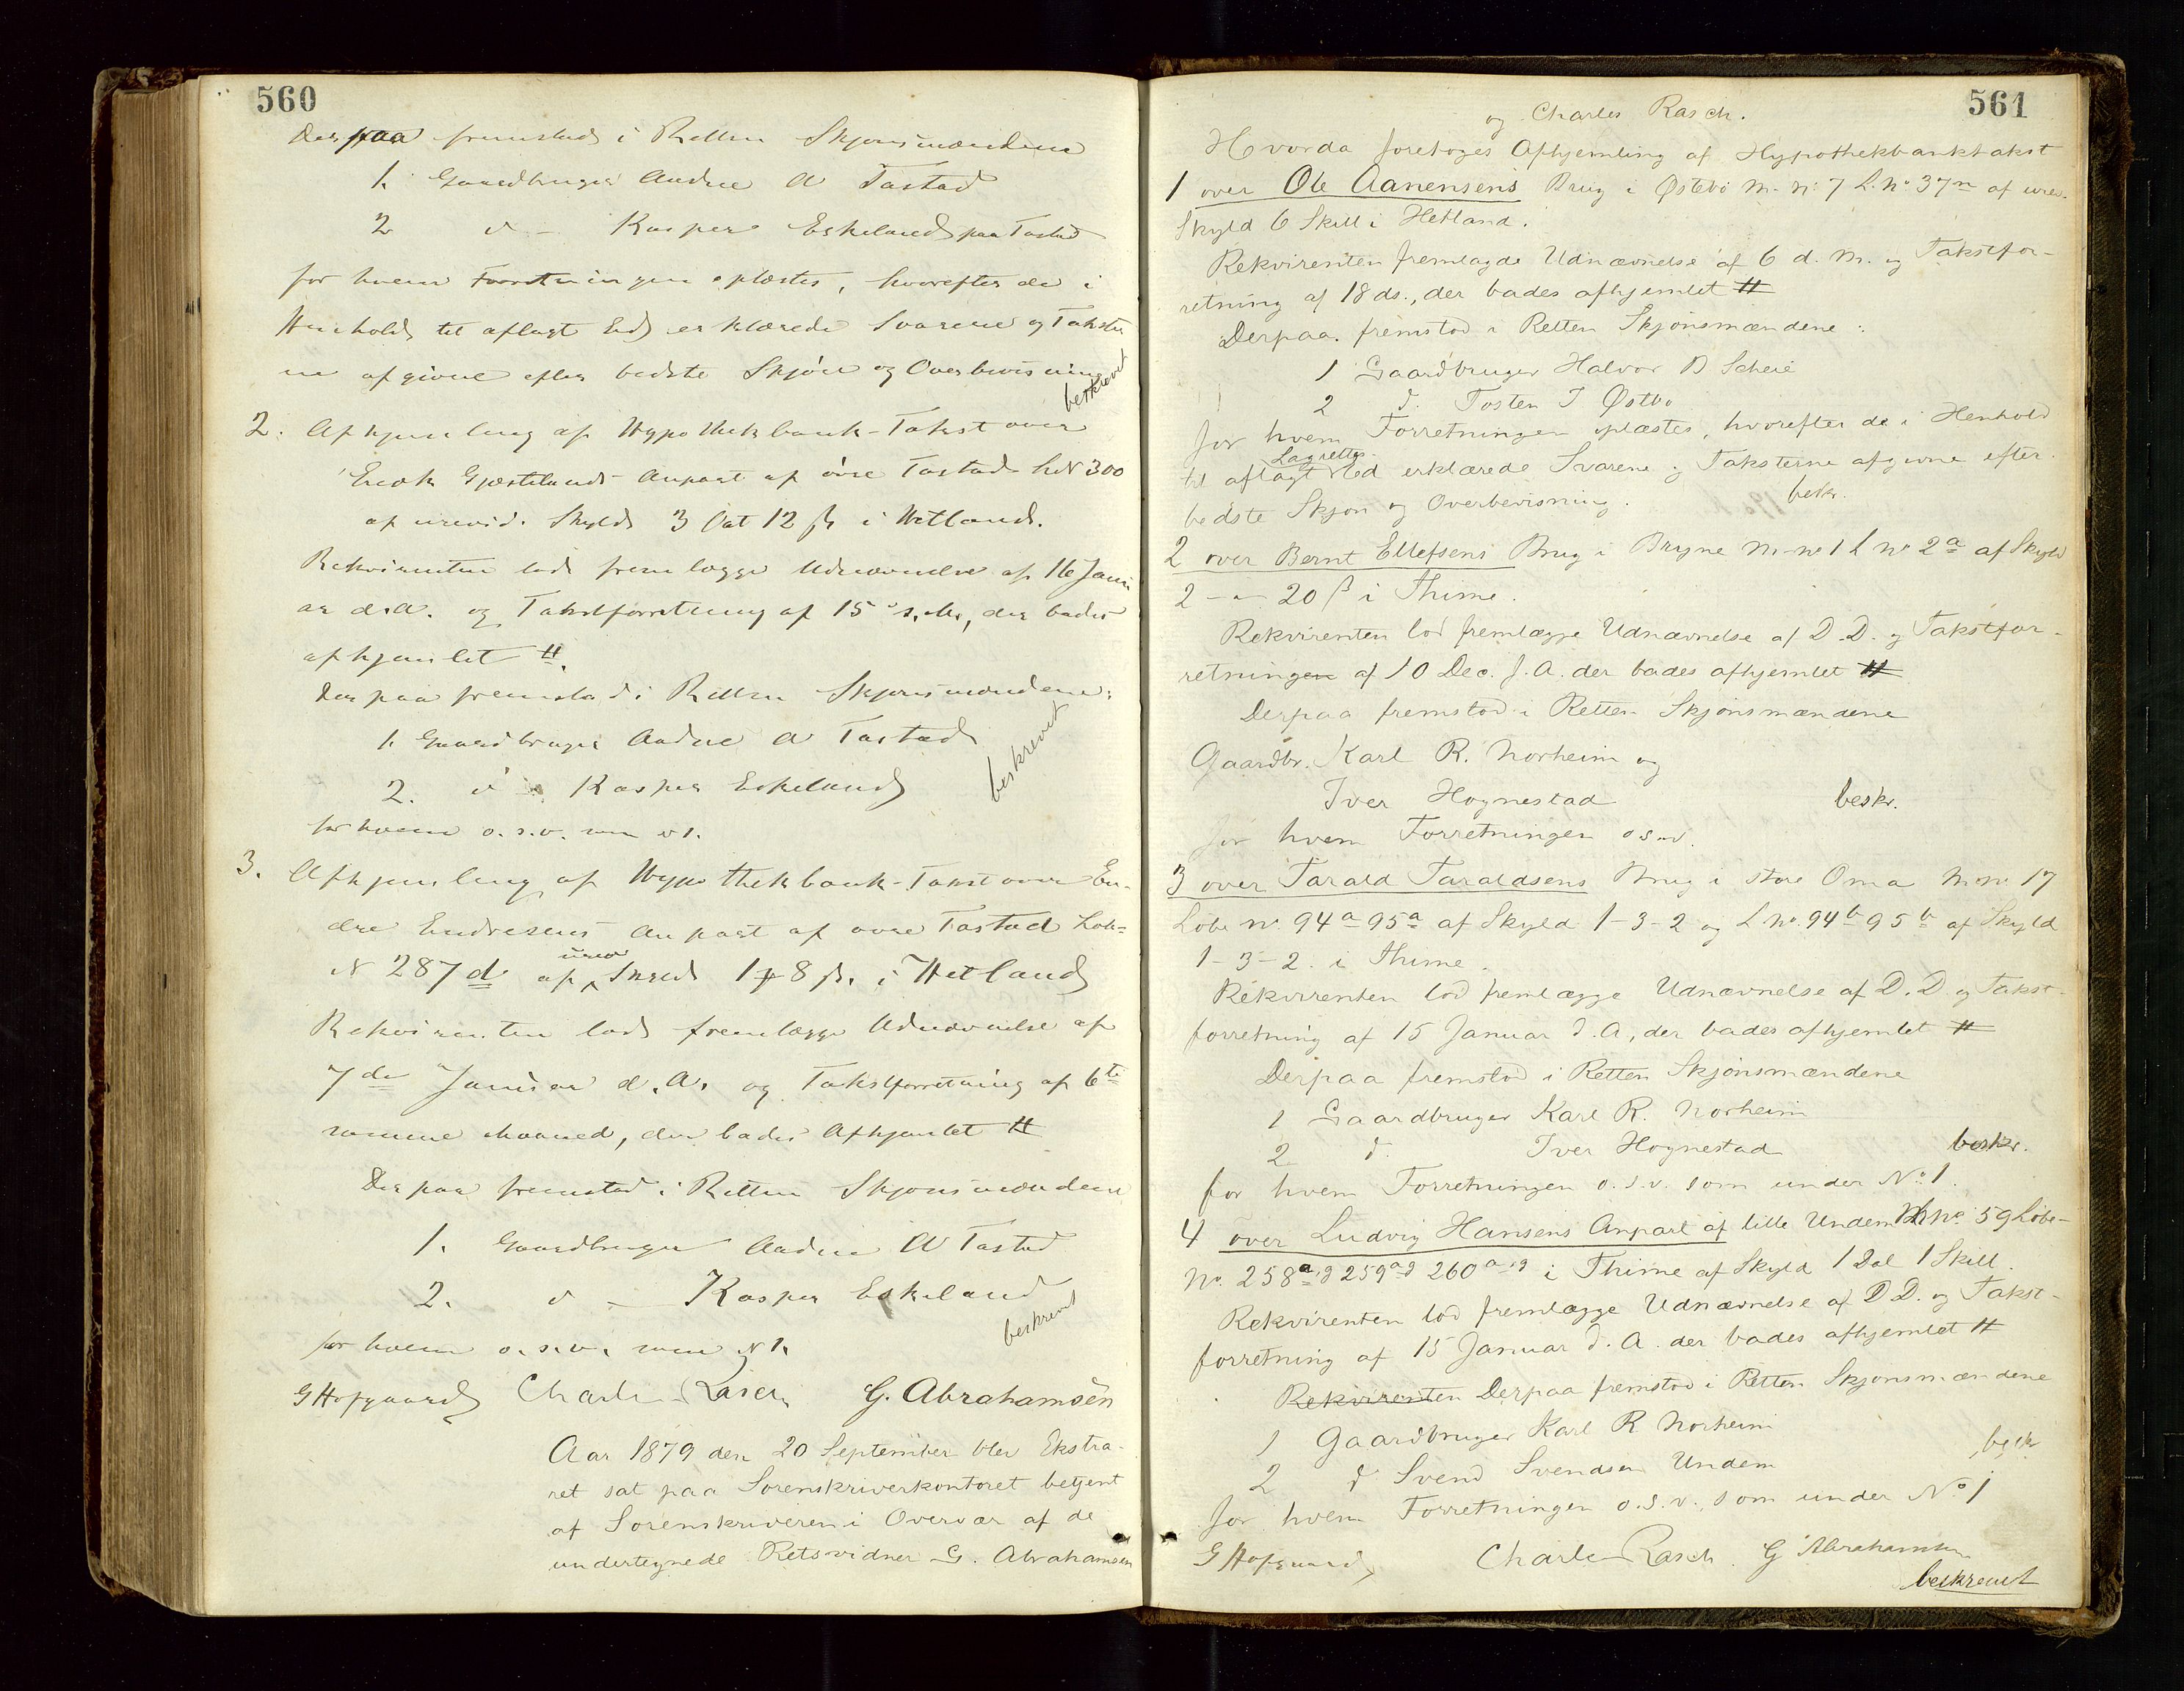 560
Derpaa fremstod i Retten Skjønsmændene
1. Gaardbruger Andue A Tastad
2 d - Kasper Eskeland paa Tastad
for hvem Forretningen oplæstes, hvorefter de i
Henhold til aflagt Ed erklærede Svarene og Takster
ne afgivne efter bedste Skjøn og Overbevisning
beskrevet
2. Afhjemling af Hypothekbank-Takst over
Anpart af øvre Tastad LN 300
af urevid. Skyld 3 Ort 12 ß i Hetland.
Rekvirenten lod fremlægge Udnævnelse af 16 Janu
ar d.A. og Takstforretning af 15 s.M., der bades
afhjemlet #.
Derpaa fremstod i Retten Skjønsmændene:
1. Gaardbruger Andue A Tastad
2. d - Kasper Eskeland
beskrevet
for hvem o.s.v. som N 1.
3. Afhjemling af Hypothekbank-Takst over En-
dre Endresens Anpart af øvre Tastad Løb-
N 287d af urev Skyld 1 8 ß. i Hetland
Rekvirenten lod fremlægge Udnævnelse af
7de Januar d.A. og Takstforretning af 6te
samme Maaned, der bades Afhjemlet #
Derpaa fremstod i Retten Skjønsmændene
1. Gaardbruger Andue A Tastad
2. d - Kasper Eskeland
beskrevet
for hvem o.s.v. som N 1.
G Hofgaard Charles Rasch G. Abrahamsen
Aar 1879 den 20 September blev Ekstra-
ret sat paa Sorenskriverkontoret betjent
af Sorenskriveren i Overvær af de
undertegnede Retsvidner G. Abrahamsen
561
og Charles Rasch.
Hvorda foretoges Afhjemling af Hypothekbanktakst
1 over Ole Aanensens Brug i Østebø M. No 7 L. No 37n af urev.
Skyld 6 Skill i Hetland.
Rekvirenten fremlagde Udnævnelse af 6 d. M. og Takstfor-
retning af 18 ds., der bades afhjemlet #
Derpaa fremstod i Retten Skjønsmændene:
1 Gaardbruger Halvor B Scheie
2 d. Tosten I Østbø
for hvem Forretningen oplæstes, hvorefter de i Henhold
til aflagt Lagrettes Ed erklærede Svarene og Taksterne afgivne efter
bedste Skjøn og Overbevisning. beskr.
2 over Bernt Ellefsens Brug i Bryne M-no 1 L no 2a af Skyld
2 - " - 20 ß i Thime.
Rekvirenten lod fremlægge Udnævnelse af D.D. og Takstfor-
retningen af 10 Dec. f. A. der bades afhjemlet #
Derpaa fremstod i Retten Skjønsmændene
Gaardbr. Karl R. Norheim og
Iver Hognestad beskr.
for hvem Forretningen o s. v.
3 over Tarald Taraldsens Brug i store Oma M.no 17
Løbe no. 94a 95a af Skyld 1-3-2 og L no. 94b 95b af Skyld
1-3-2. i Thime.
Rekvirenten lod fremlægge Udnævnelse af D.D. og Takst-
forretning af 15 Januar d.A., der bades afhjemlet #
Derpaa fremstod i Retten Skjønsmændene
1 Gaardbruger Karl R. Norheim
2 d. Iver Hognestad beskr.
for hvem Forretningen o.s.v. som under No 1.
4 over Ludvig Hansens Anpart af lille Undem M no 59 Løbe-
No. 258a,g 259a,g 260a,g i Thime af Skyld 1 Dal 1 Skill.
Rekvirenten lod fremlægge Udnævnelse af D D. og Takst-
forretning af 15 Januar d. A. der bades afhjemlet #
Rekvirenten Derpaa fremstod i Retten Skjønsmændene
1 Gaardbruger Karl R Norheim
2 d Svend Svendsen Undem beskr
for hvem Forretningen o.s.v., som under No 1
G Hofgaard Charles Rasch. G Abrahamsen
beskrevet